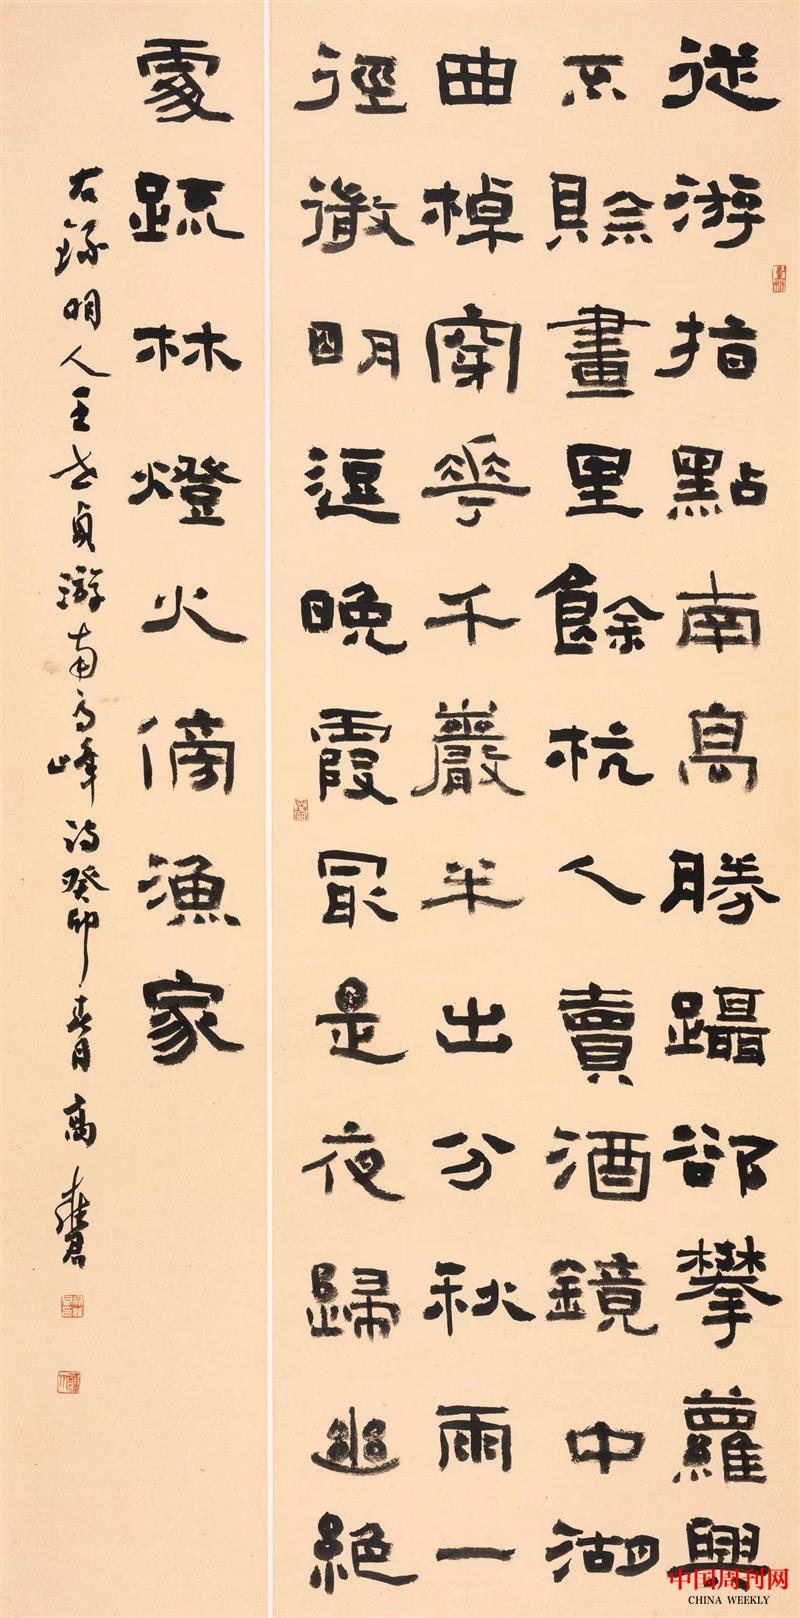 從游指點南高勝躡卻攀蘿興
不賒畫里餘杭人賣酒鏡中湖
曲棹穿花千巖半出分秋雨一
徑微明逗晚霞冣是夜歸幽絕
處疏林燈火傍漁家
右錄明人王世貞游南高峰詩癸卯春月高
中国周刊网
CHINA WEEKLY